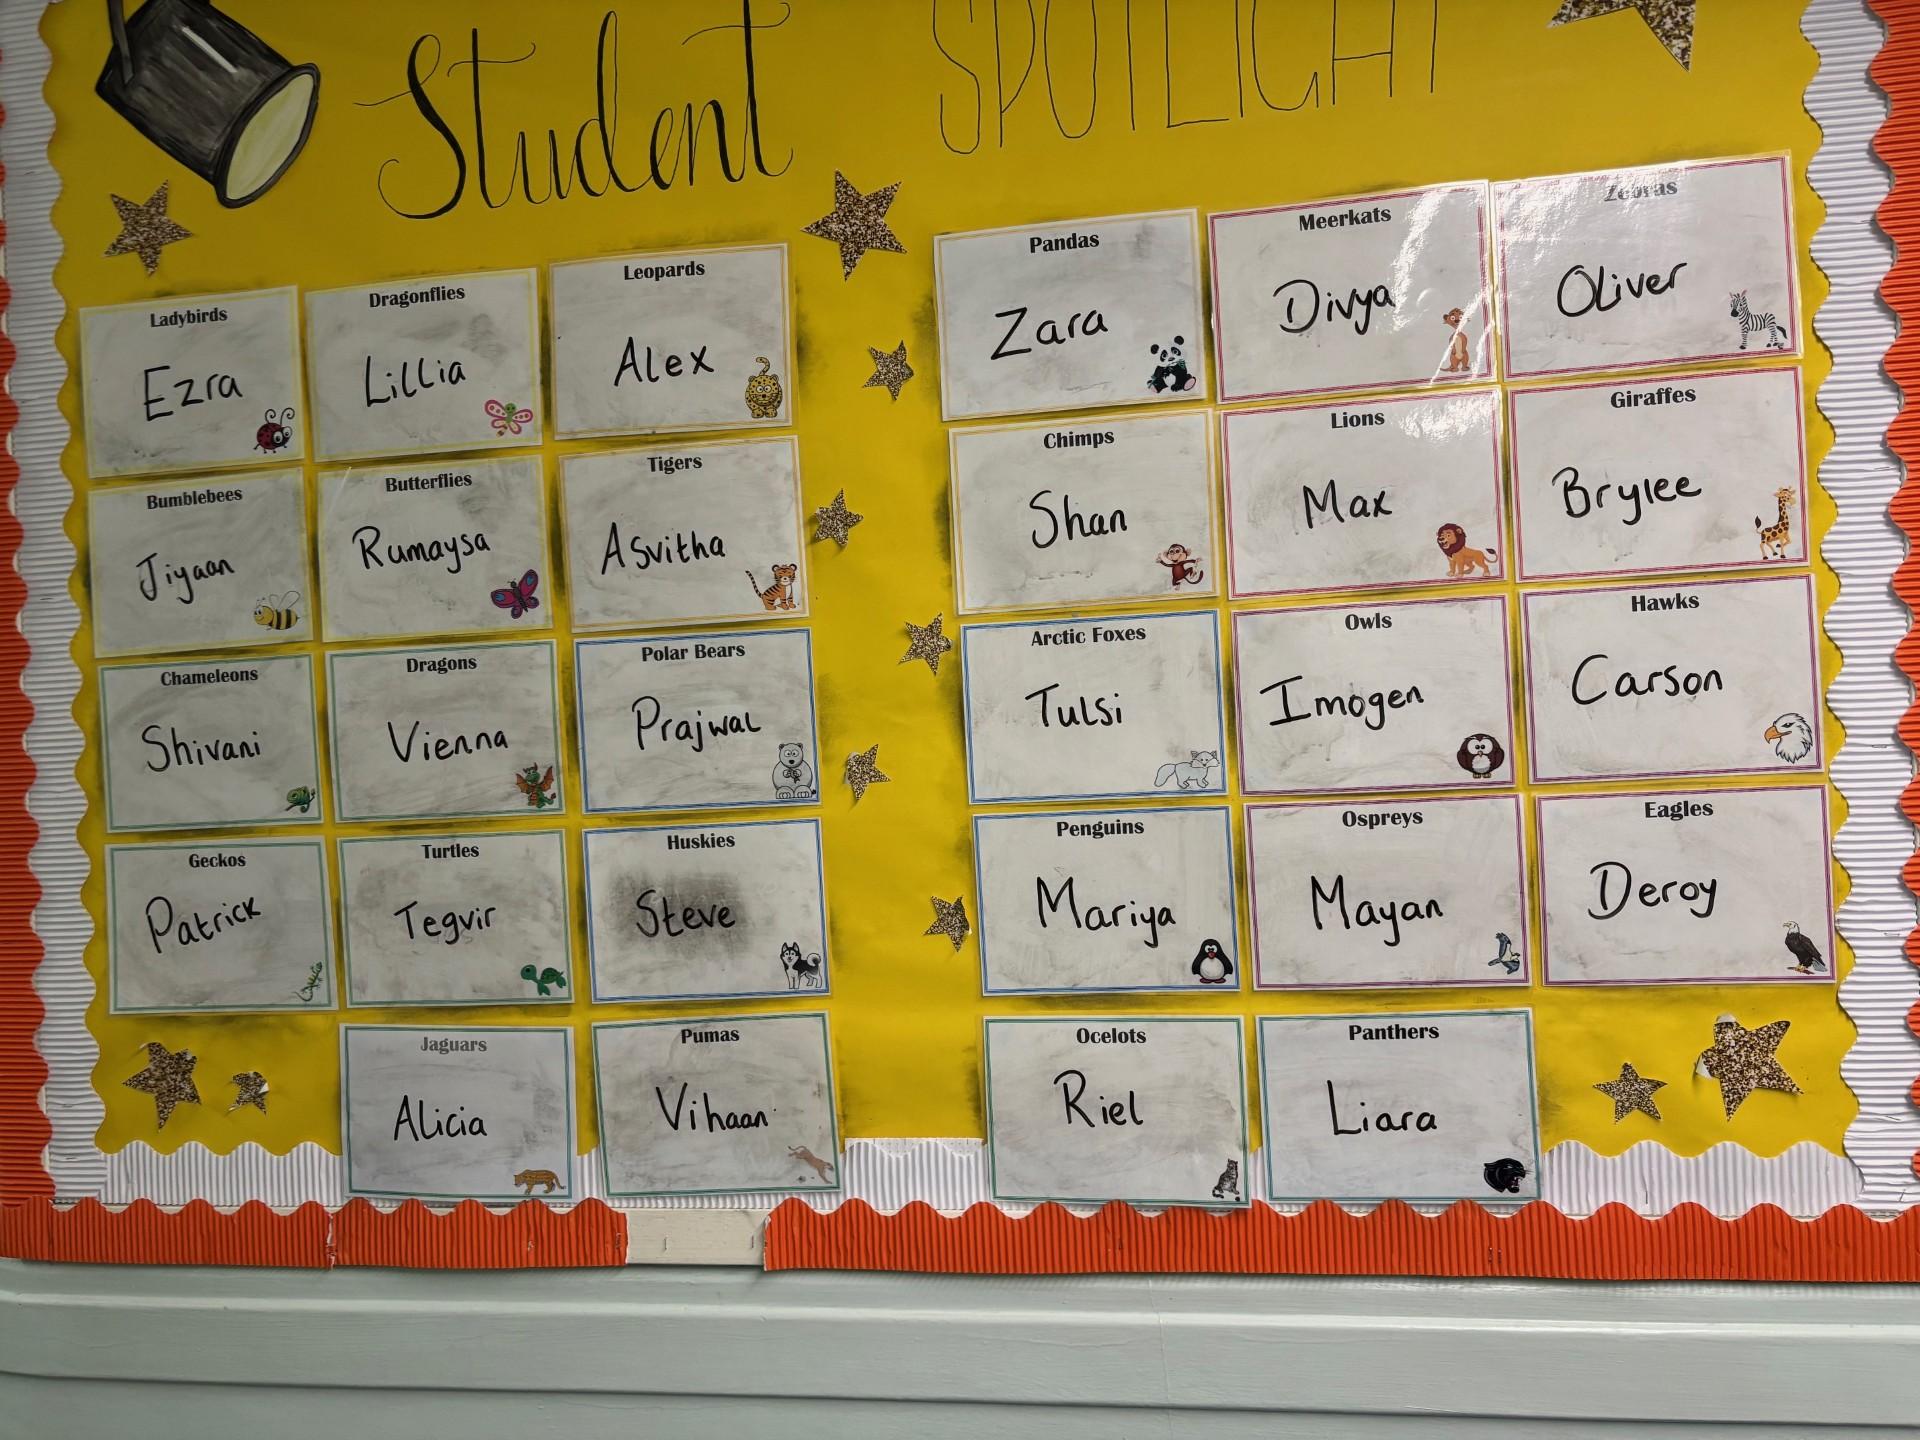 Student SPOTLIGHT
Ladybirds
Ezra
Dragonflies
Lillia
Leopards
Alex
Bumblebees
Jiyaan
Butterflies
Rumaysa
Tigers
Asvitha
Chameleons
Shivani
Dragons
Vienna
Polar Bears
Prajwal
Geckos
Patrick
Turtles
Tegvir
Huskies
Steve
Jaguars
Alicia
Pumas
Vihaan
Pandas
Zara
Meerkats
Divya
Zebras
Oliver
Chimps
Shan
Lions
Max
Giraffes
Brylee
Arctic Foxes
Tulsi
Owls
Imogen
Hawks
Carson
Penguins
Mariya
Ospreys
Mayan
Eagles
Deroy
Ocelots
Riel
Panthers
Liara